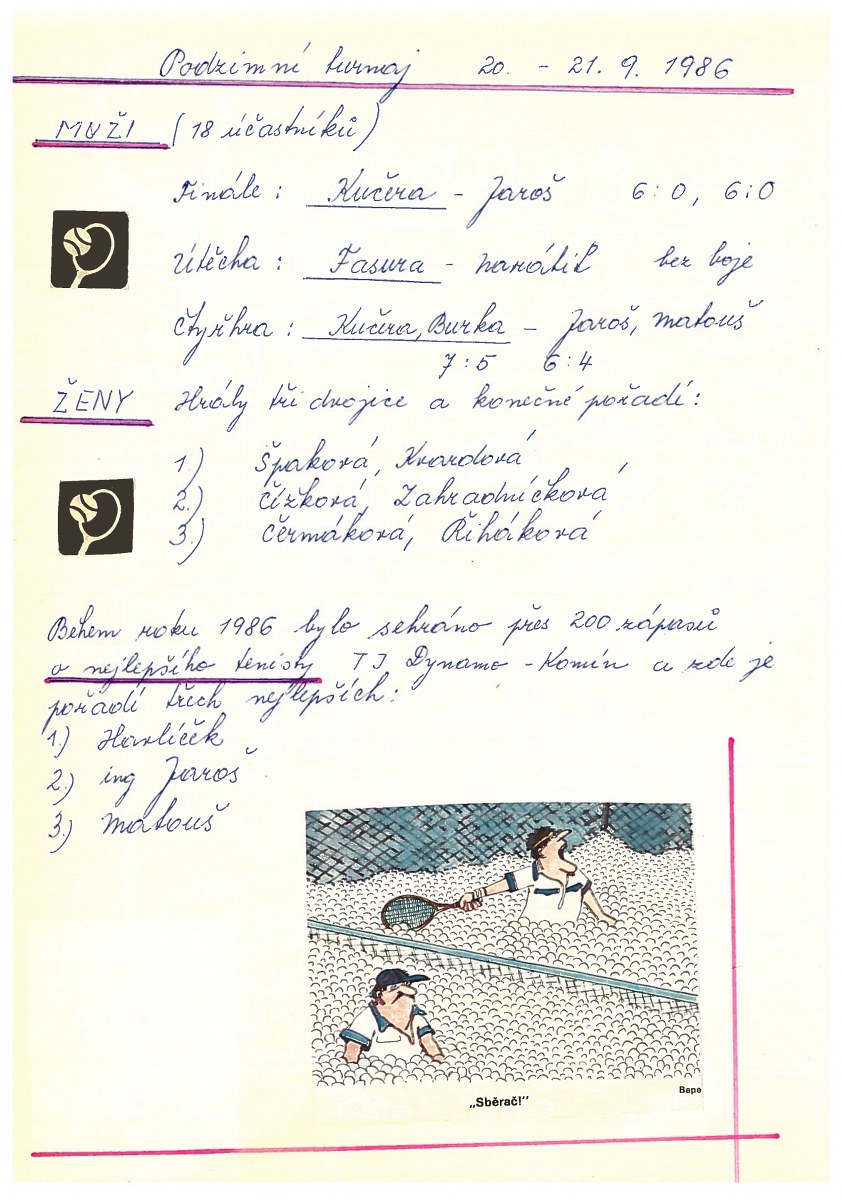 Podzimní turnaj 20. - 21. 9. 1986
MUŽI (18 účastníků)
Finále: Kučera - Jaroš 6:0, 6:0
Útěcha: Fasura - Navrátil bez boje
Čtyřhra: Kučera, Burka - Jaroš, Matouš
7:5 6:4
ŽENY Hrály tři dvojice a konečné pořadí:
1.) Špaková, Kvardová
2.) Čížková, Zahradníčková
3.) Čermáková, Řiháková
Během roku 1986 bylo sehráno přes 200 zápasů
o nejlepšího tenisty TJ Dynamo - Komín a zde je
pořadí třech nejlepších:
1.) Havlíček
2.) ing Jaroš
3.) Matouš
Bape
„Sběrač!“